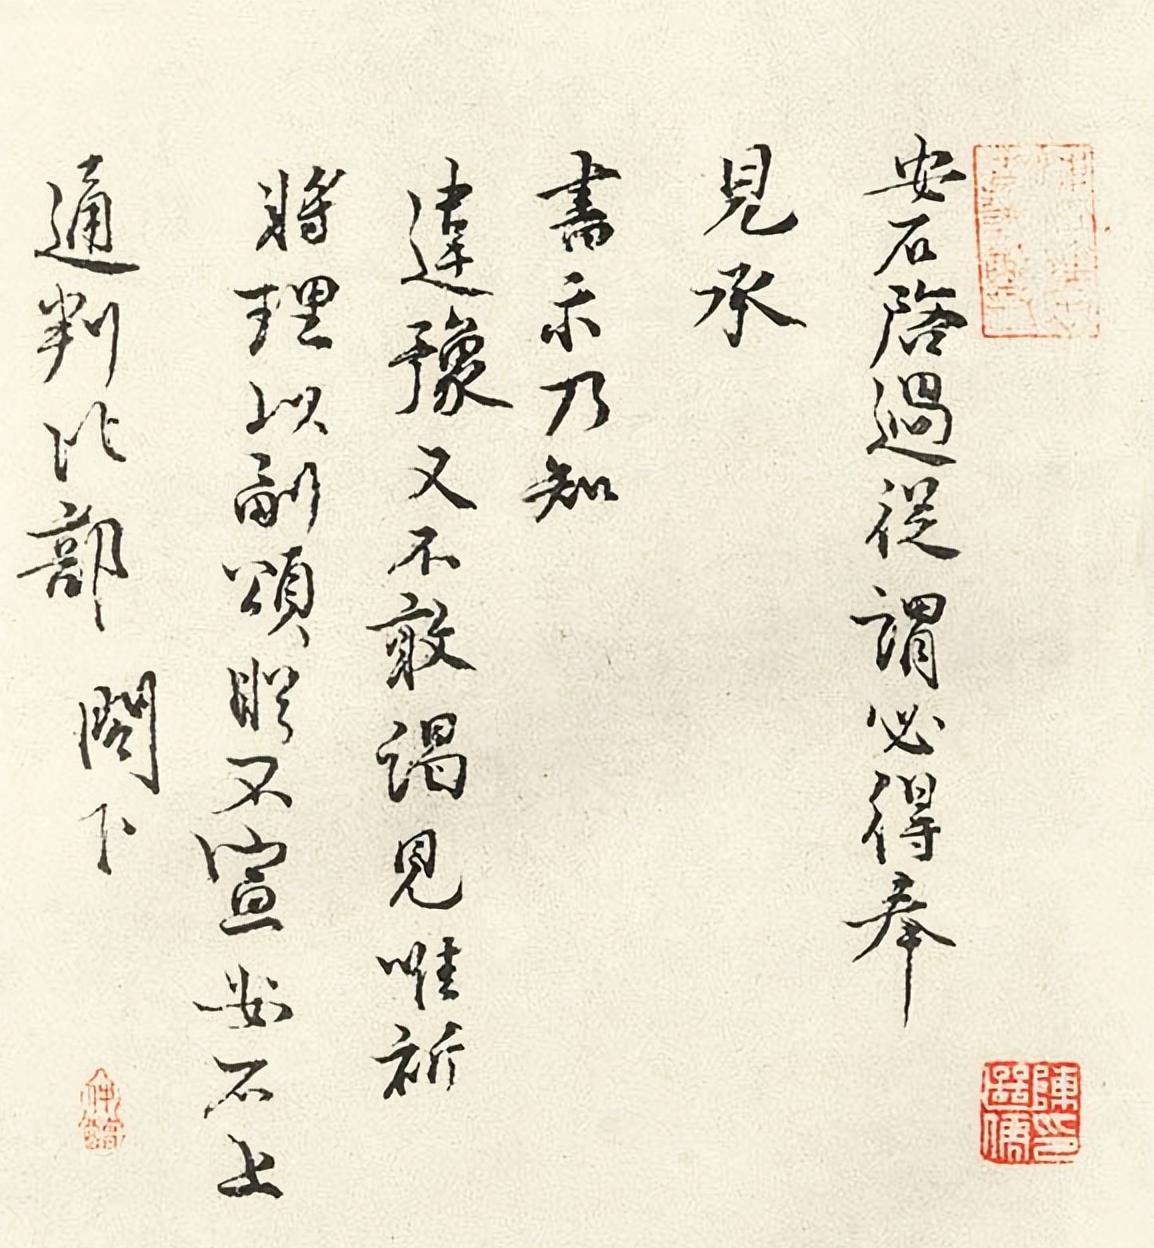 安石啓過從謂必得奉
見承
書示乃知
違豫又不敢謁見唯祈
將理以副頌盻不宣安石上
通判比部 閤下